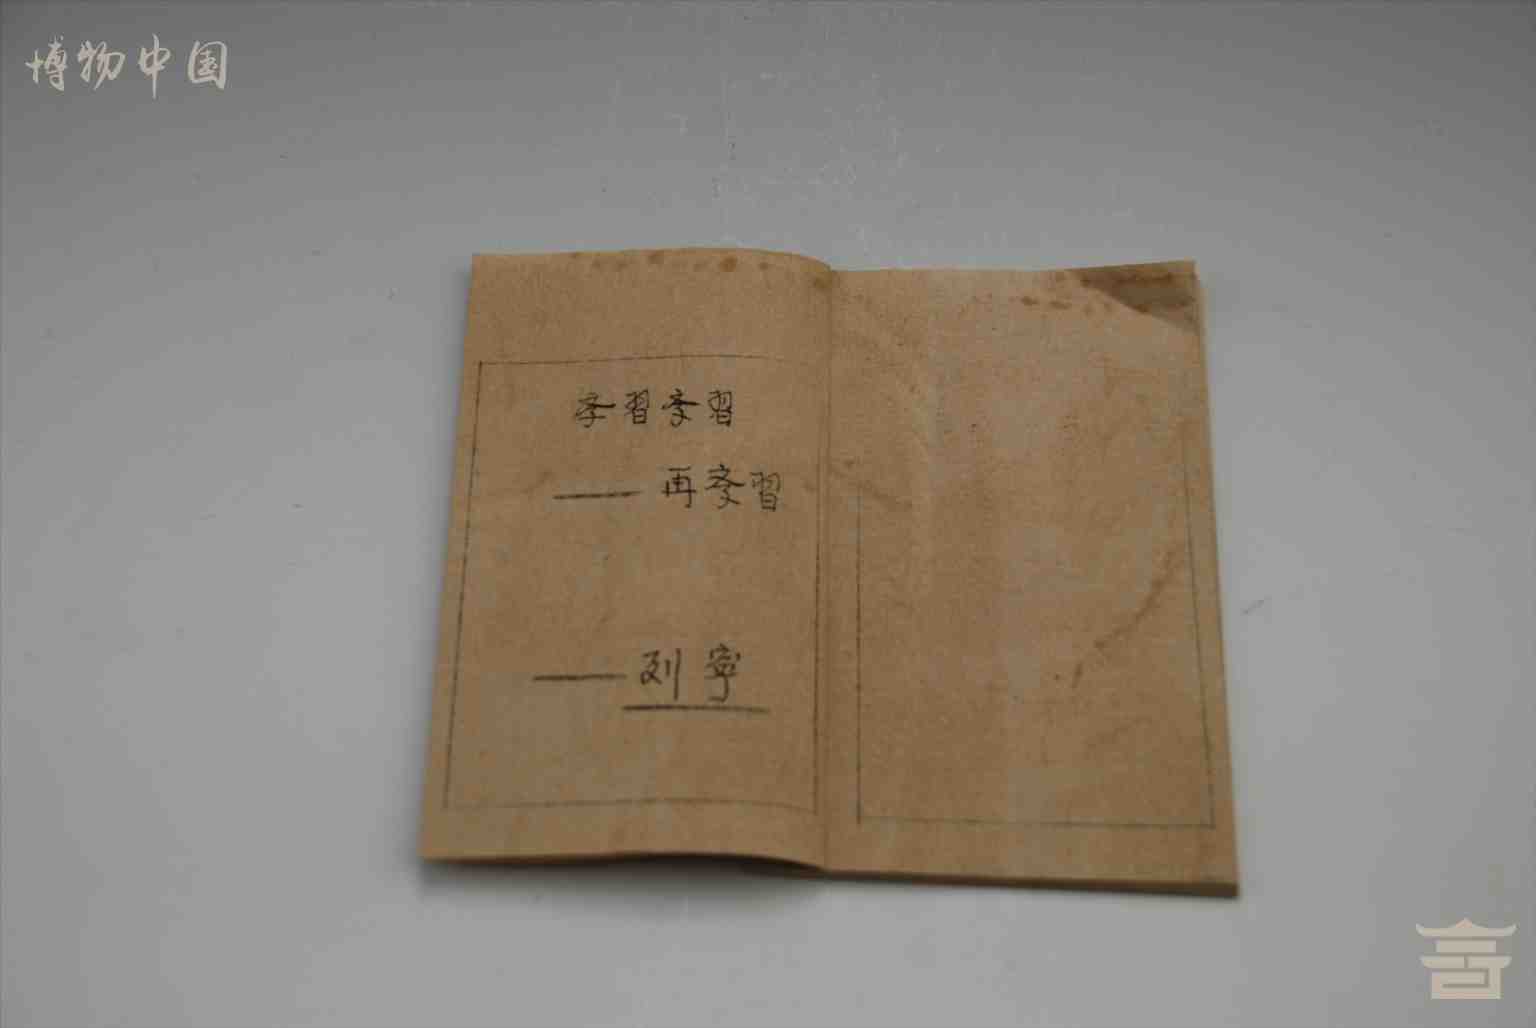 博物中国
学習学習
——再学習
——列寧